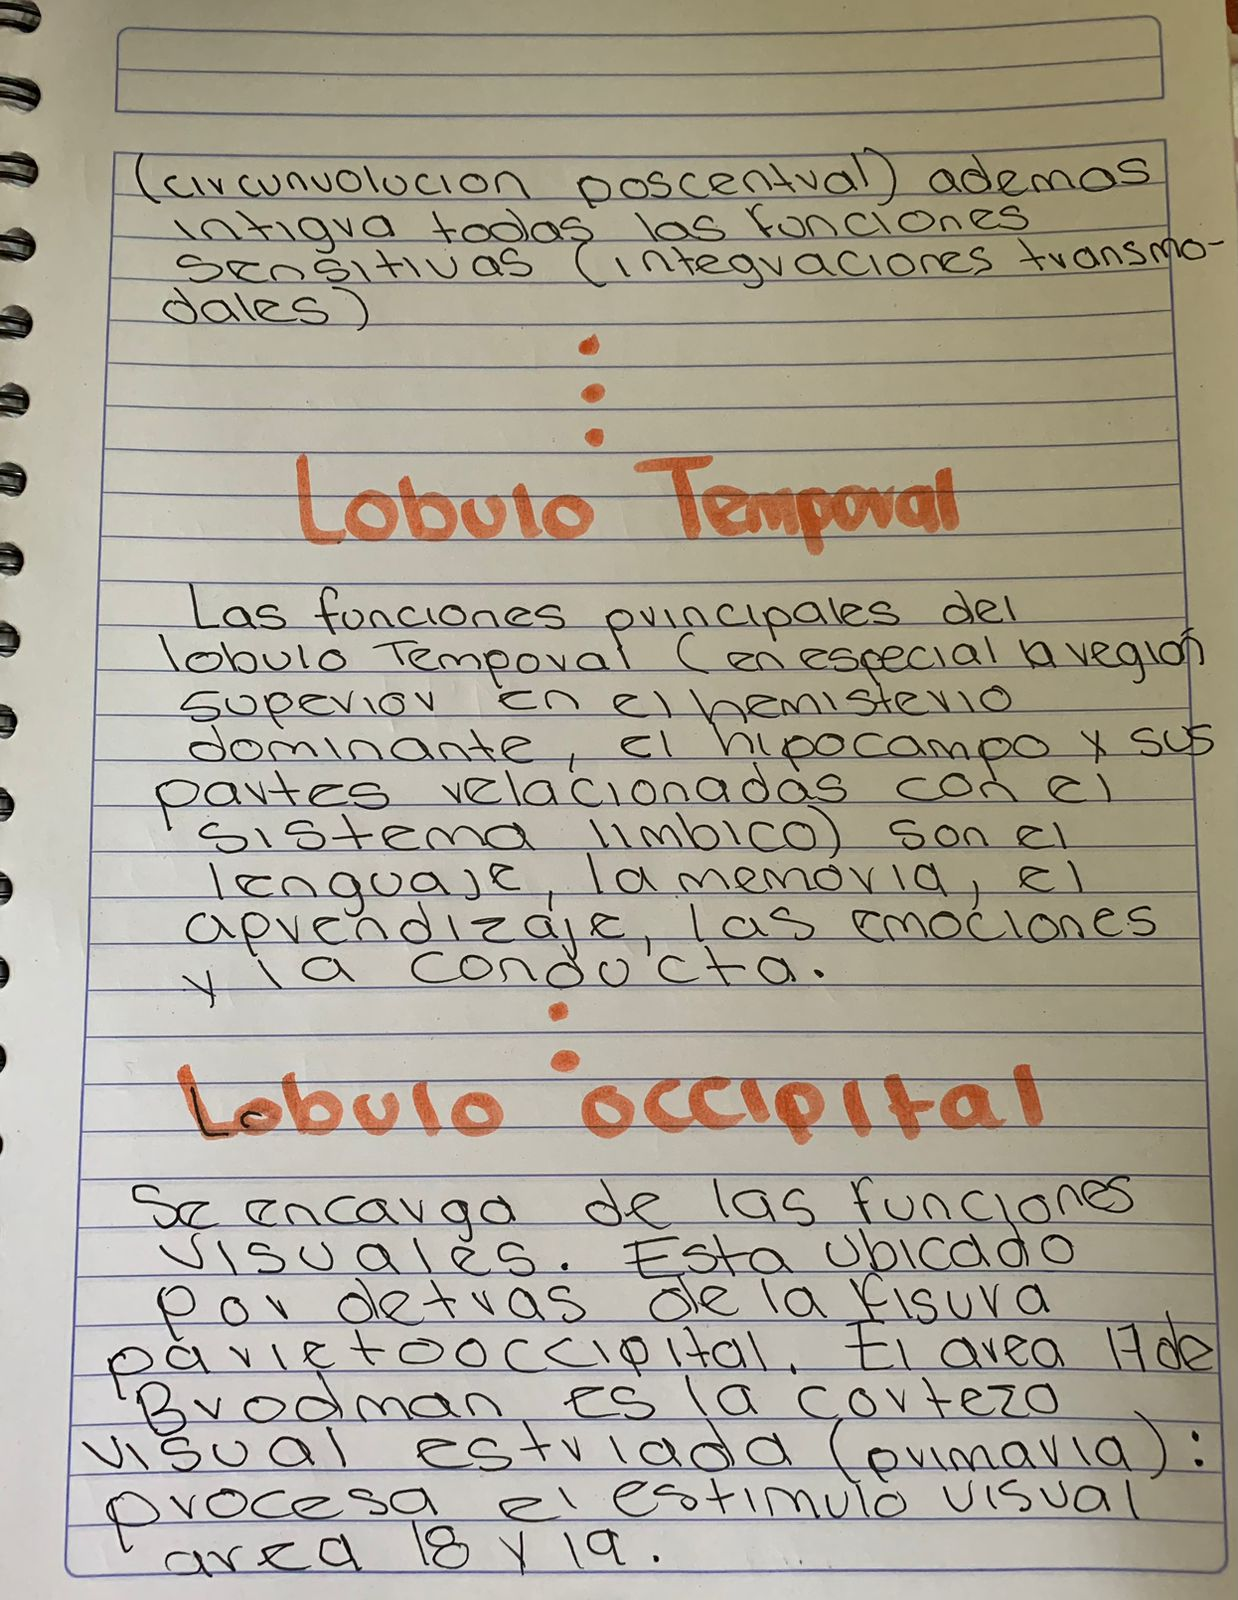 (circunvolucion poscentral) ademas
intigra todas las funciones
sensitivas (integraciones transmo-
dales)
Lobulo Temporal
Las funciones principales del
lobulo Temporal (en especial la region
superior en el hemisferio
dominante, el hipocampo y sus
partes relacionadas con el
sistema limbico) son el
lenguaje, la memoria, el
aprendizaje, las emociones
y la conducta.
Lobulo occipital
Se encarga de las funciones
visuales. Esta ubicado
por detras de la fisura
parietooccipital. El area 17 de
Brodman es la corteza
visual estriada (primaria):
procesa el estimulo visual
area 18 y 19.